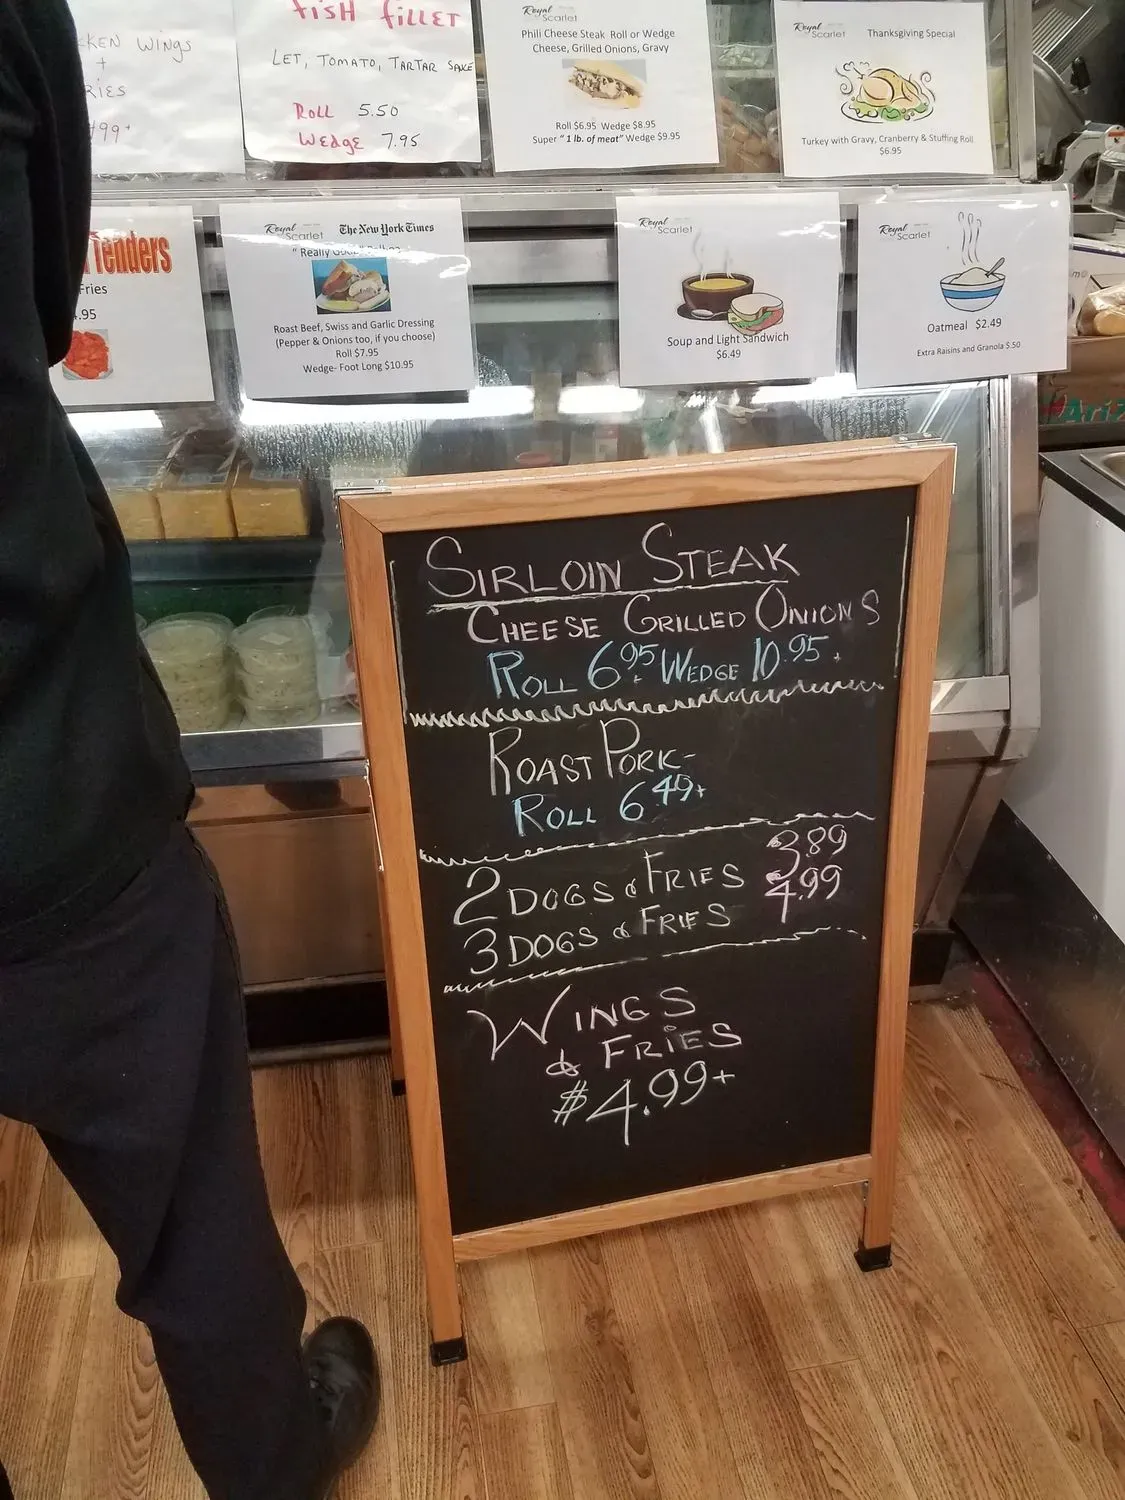 Wings
+
99+
Fish Fillet
LET, TOMATO, TARTAR SAUCE
Roll 5.50
Wedge 7.95
Royal
Scarlet
Phili Cheese Steak Roll or Wedge
Cheese, Grilled Onions, Gravy
Roll $6.95 Wedge $8.95
Super "1 lb. of meat" Wedge $9.95
Royal
Scarlet
Thanksgiving Special
Turkey with Gravy, Cranberry & Stuffing Roll
$6.95
Tenders
Fries
.95
Royal
Scarlet
The New York Times
"Really
Roast Beef, Swiss and Garlic Dressing
(Pepper & Onions too, if you choose)
Roll $7.95
Wedge- Foot Long $10.95
Royal
Scarlet
Soup and Light Sandwich
$6.49
Royal
Scarlet
Oatmeal $2.49
Extra Raisins and Granola $.50
SIRLOIN STEAK
CHEESE GRILLED ONIONS
ROLL 6.95+ WEDGE 10.95+
ROAST PORK-
ROLL 6.49+
2 DOGS & FRIES 3.89
3 DOGS & FRIES 4.99
WINGS
& FRIES
$4.99+